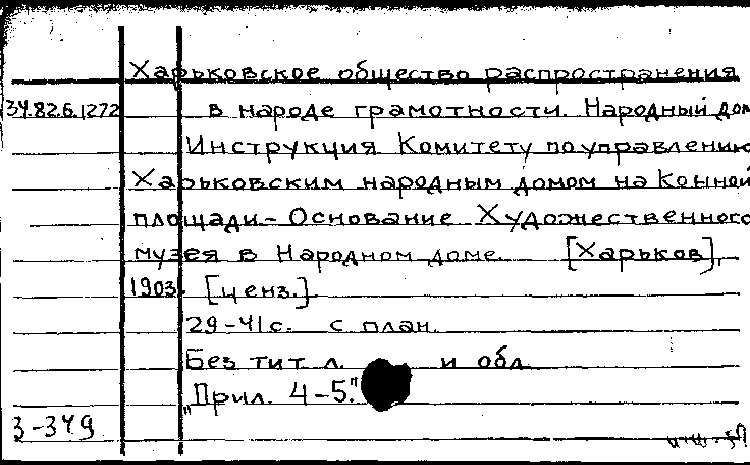 Харьковское общество распространения
34.82.6.1272 в народе грамотности. Народный дом
Инструкция Комитету по управлению
Харьковским народным домом на Конной
площади - Основание Художественного
музея в Народном доме. [Харьков],
1903. [ценз.].
29-41 с. с план.
Без тит. л. и обл.
„Прил. 4-5."
3-349